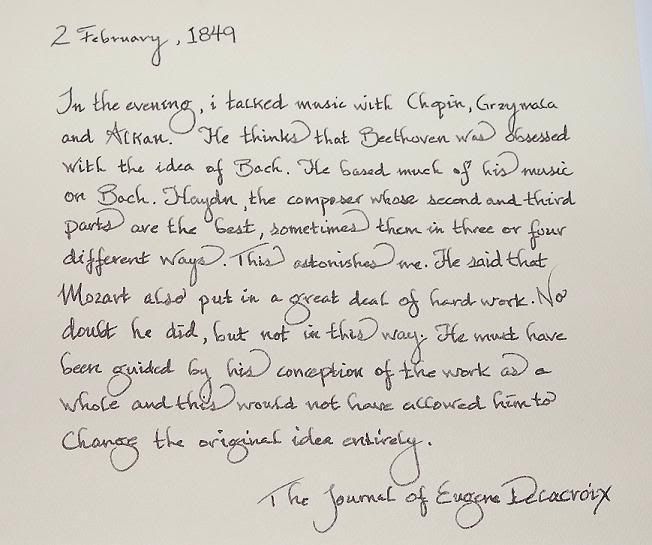 2 February, 1849
In the evening, i talked music with Chopin, Grzymala
and Alkan. He thinks that Beethoven was obsessed
with the idea of Bach. He based much of his music
on Bach. Haydn, the composer whose second and third
parts are the best, sometimes them in three or four
different ways. This astonishes me. He said that
Mozart also put in a great deal of hard work. No
doubt he did, but not in this way. He must have
been guided by his conception of the work as a
whole and this would not have allowed him to
Change the original idea entirely.
The Journal of Eugene Delacroix